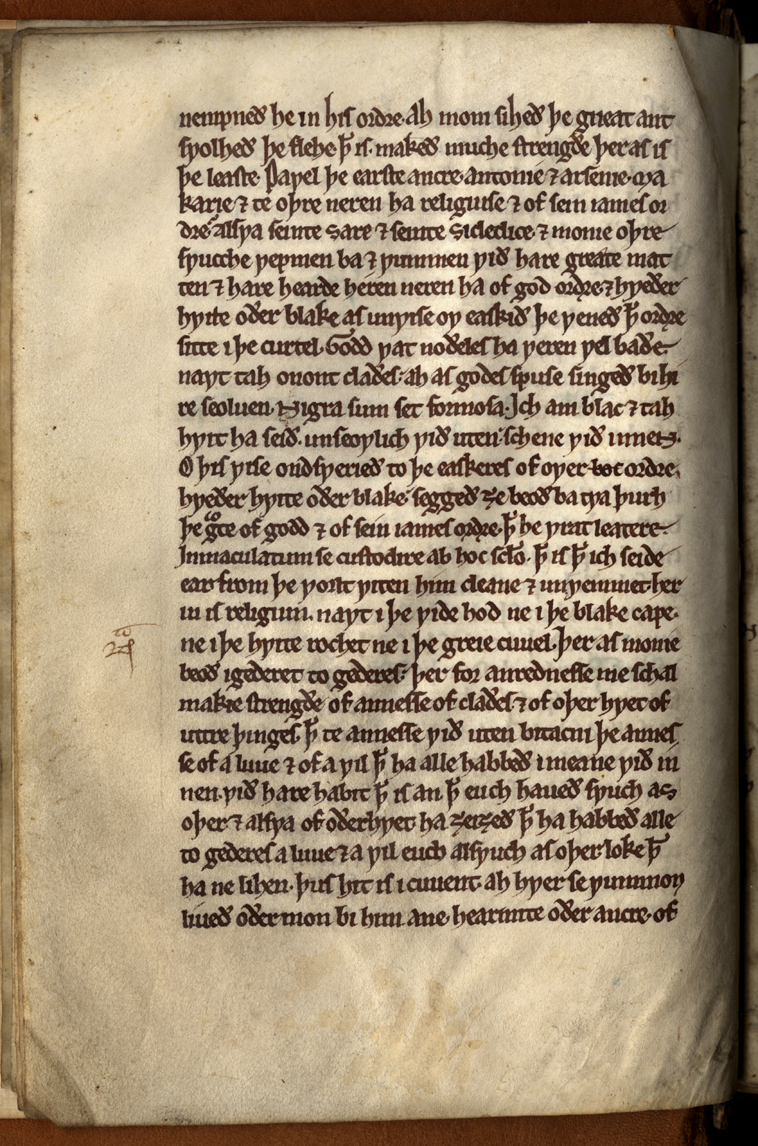 nempneð he in his ordre. Ah moni siheð þe gneat ant
sƿolheð þe flehe. ꝥ is. makeð muche strengðe þer as is
þe leaste. Paƿel þe earste ancre. antonie ⁊ arsenie. Ma
karie ⁊ te oþre neren ha religiuse ⁊ of sein iames or
dre. alsƿa seinte Sare ⁊ seinte Sicleclice. ⁊ monie oþre
sƿucche ƿepmen ba ⁊ ƿummen ƿið hare greate mat
ten ⁊ hare hearde heren neren ha of god ordre. ⁊ hƿeðer
hƿite oðer blake as unƿise oƿ easkið þe ƿeneð ꝥ ordre
sitte i þe curtel. Godd ƿat noðeles ha ƿeren ƿel baðe.
naƿt tah onont claðes. ah as godes spuse singeð bi hi
re seoluen. Nigra sum set formosa. Ich am blac ⁊ tah
hƿit ha seið. unseoƿlich ƿið uten. schene ƿið innen.
O þis ƿise ondsƿerieð to þe easkeres of oƿer ordre.
hƿeðer hƿite oðer blake. seggeð ȝe beoð ba tƿa þurh
þe gͣce of godd ⁊ of sein iames ordre. ꝥ he ƿrat leatere.
Inmaculatum se custodire ab hoc scl̄o. ꝥ is ꝥ ich seide
ear from þe ƿorlt ƿiten him cleane ⁊ unƿemmet. her
in is religiun. naƿt i þe ƿide hod ne i þe blake cape.
ne i þe hƿite rochet ne i þe greie cuuel. Þer as monie
beoð igederet to gederes. þer for anrednesse me schal
makie strengðe of annesse of claðes. ⁊ of oþer hƿet of
uttre þinges. ꝥ te annesse ƿið uten bitacni þe annes
se of a luue ⁊ of a ƿil ꝥ ha alle habbeð imeane ƿið in
nen. ƿið hare habit ꝥ is an. ꝥ euch haueð sƿuch as
oþer ⁊ alsƿa of oðerhƿet ha ȝeiȝeð ꝥ ha habbeð alle
to gederes a luue ⁊ a ƿil euch alsƿuch as oþer loke ꝥ
ha ne lihen. þus hit is i cuuent. ah hƿer se ƿummon
liueð oðer mon bi him ane. hearmite oðer ancre. of